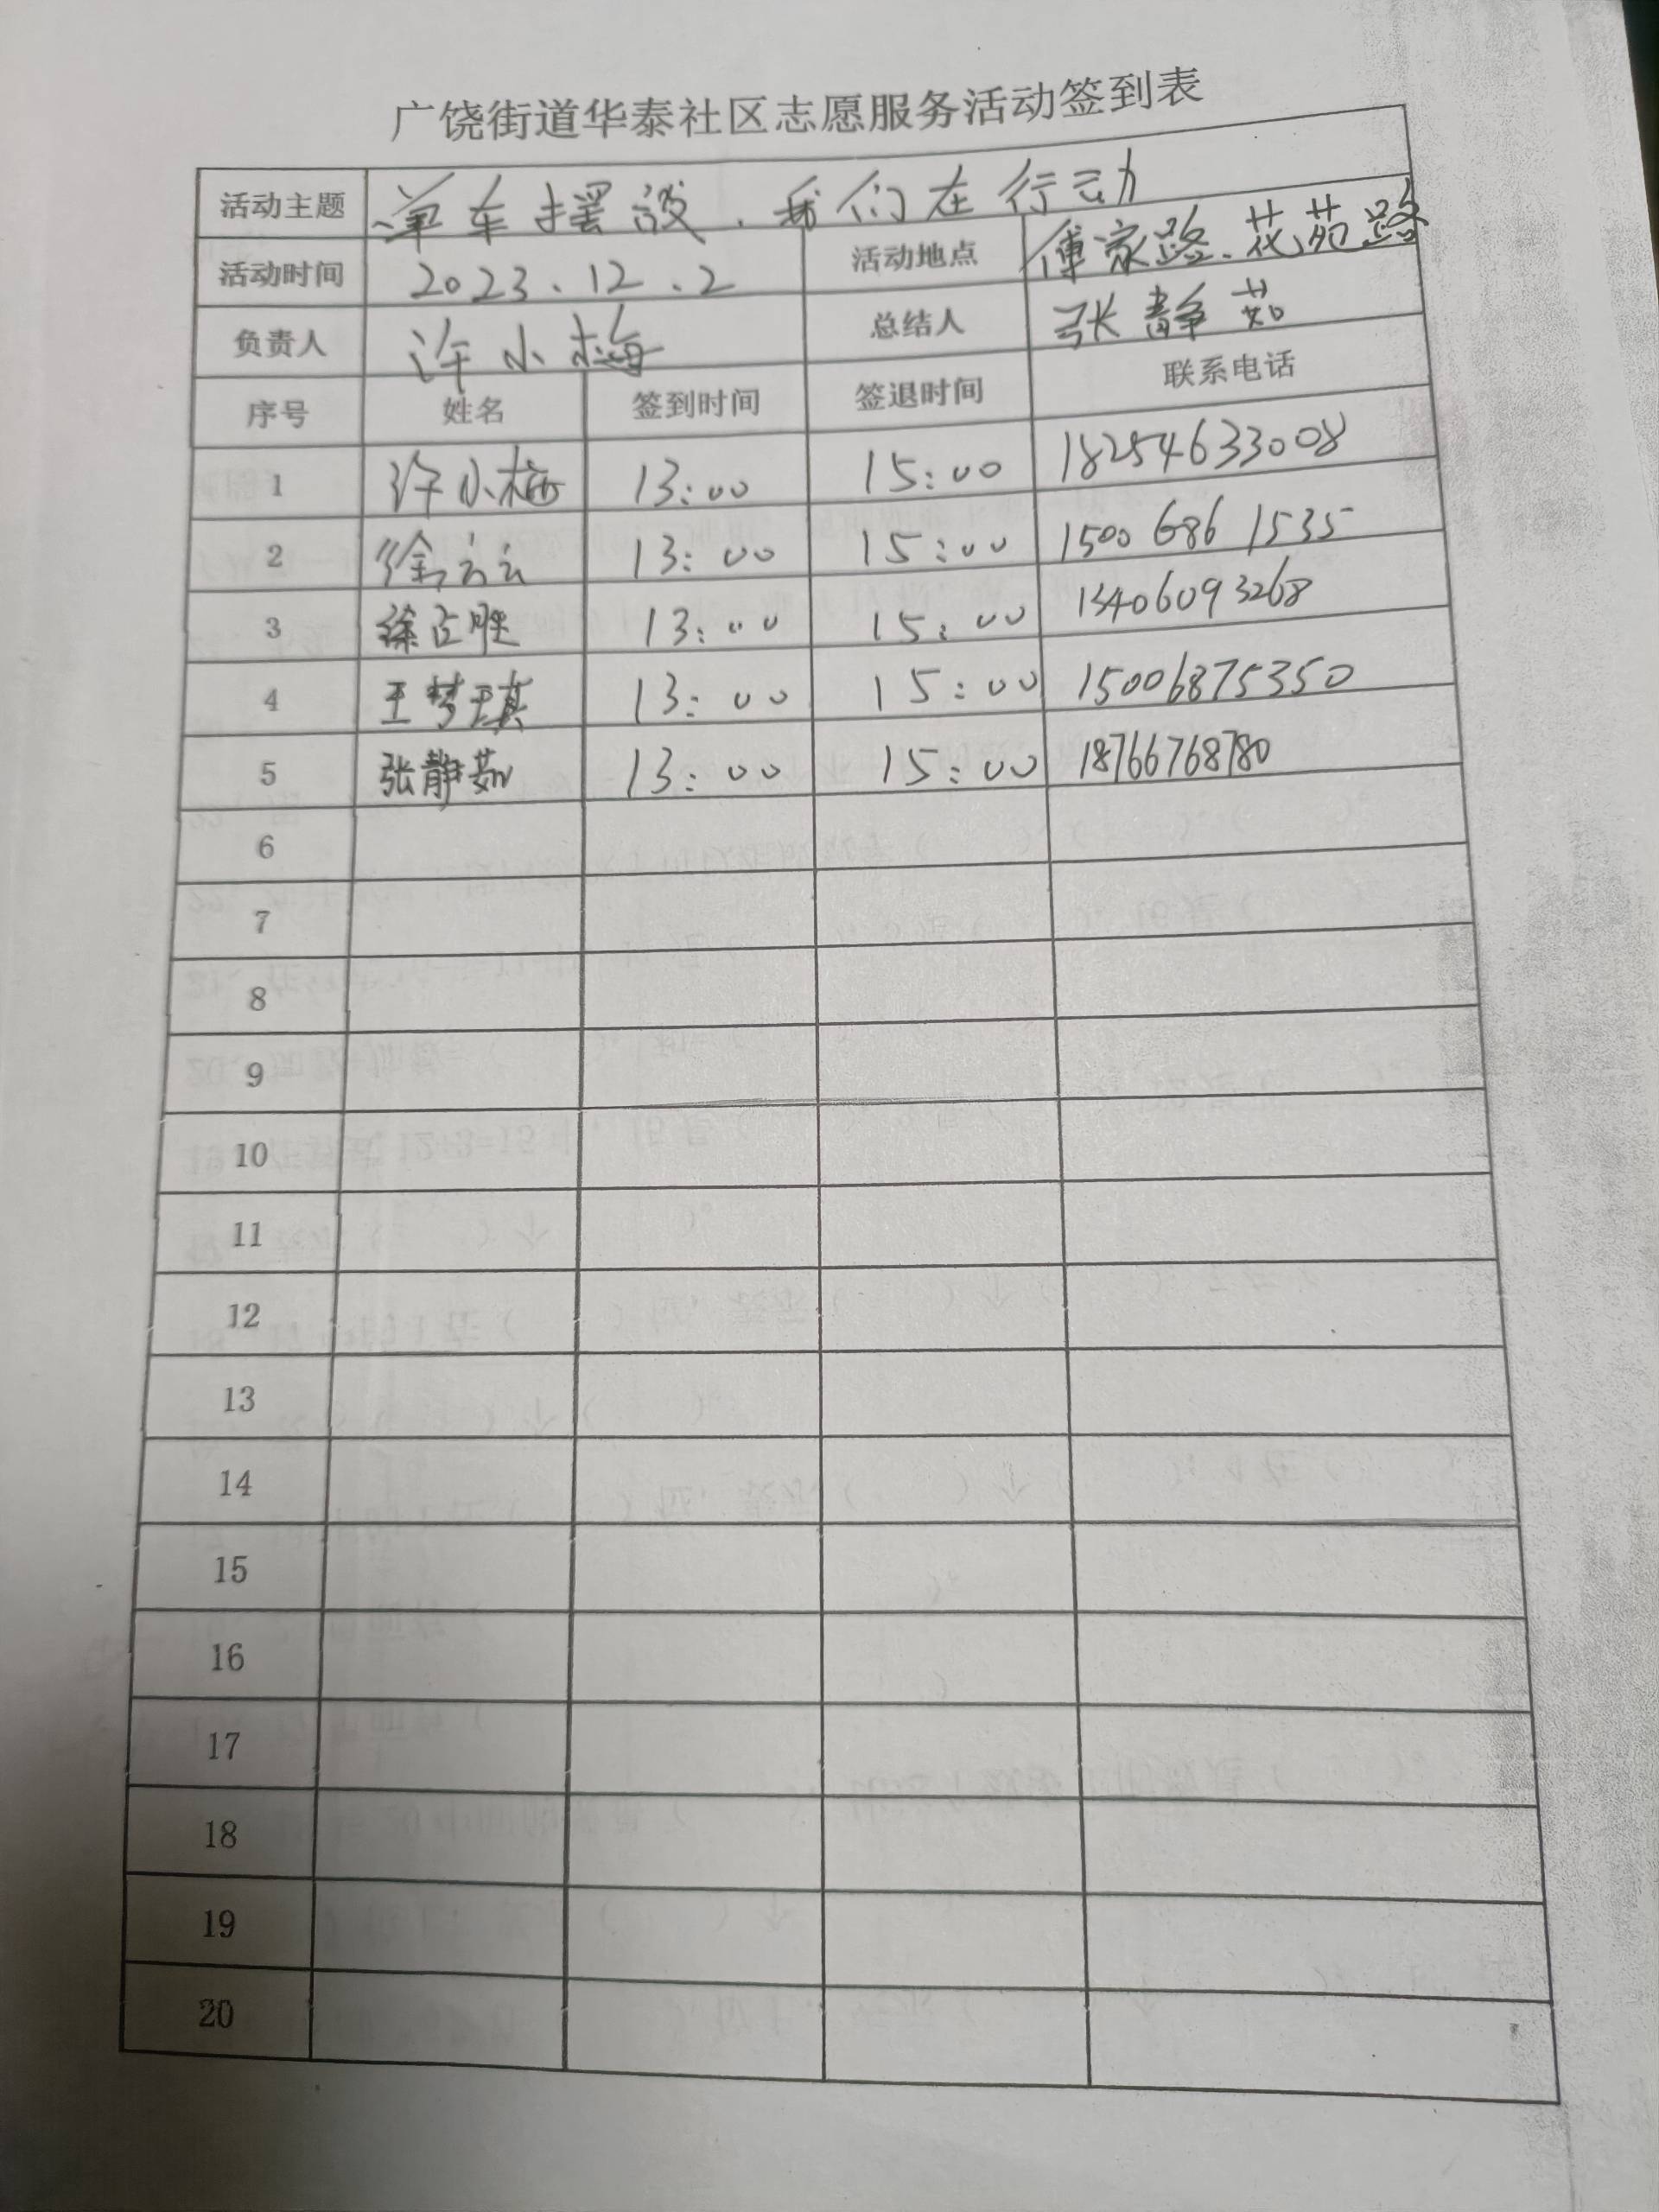 广饶街道华泰社区志愿服务活动签到表
活动主题 单车摆设、我们在行动
活动时间 2023、12、2 活动地点 傅家路、花苑路
负责人 许小梅 总结人 张静茹
序号 姓名 签到时间 签退时间 联系电话
1 许小梅 13:00 15:00 18254633008
2 徐云云 13:00 15:00 1500 686 1535
3 徐占胜 13:00 15:00 13406093268
4 王梦琪 13:00 15:00 15006875350
5 张静茹 13:00 15:00 18766768780
6
7
8
9
10
11
12
13
14
15
16
17
18
19
20